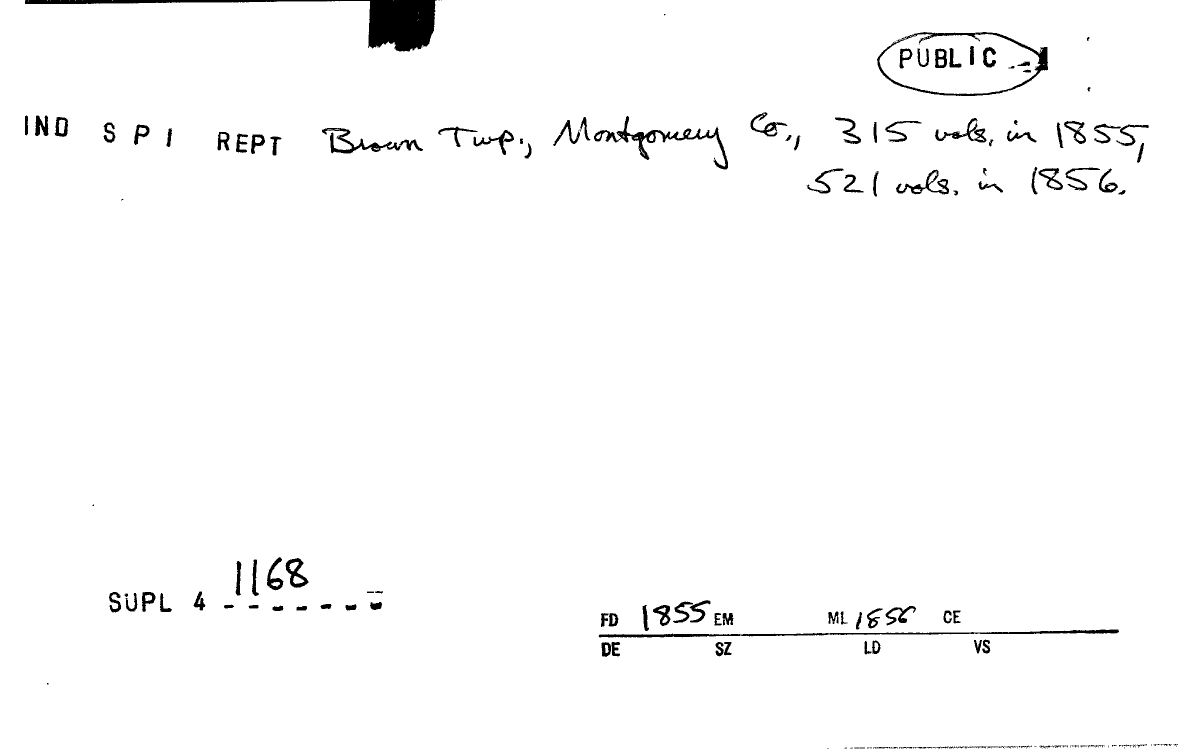 PUBLIC
IND S P I REPT Brown Twp., Montgomery Co., 315 vols. in 1855,
521 vols. in 1856.
SUPL 4 1168
FD 1855 EM ML 1856 CE
DE SZ LD VS